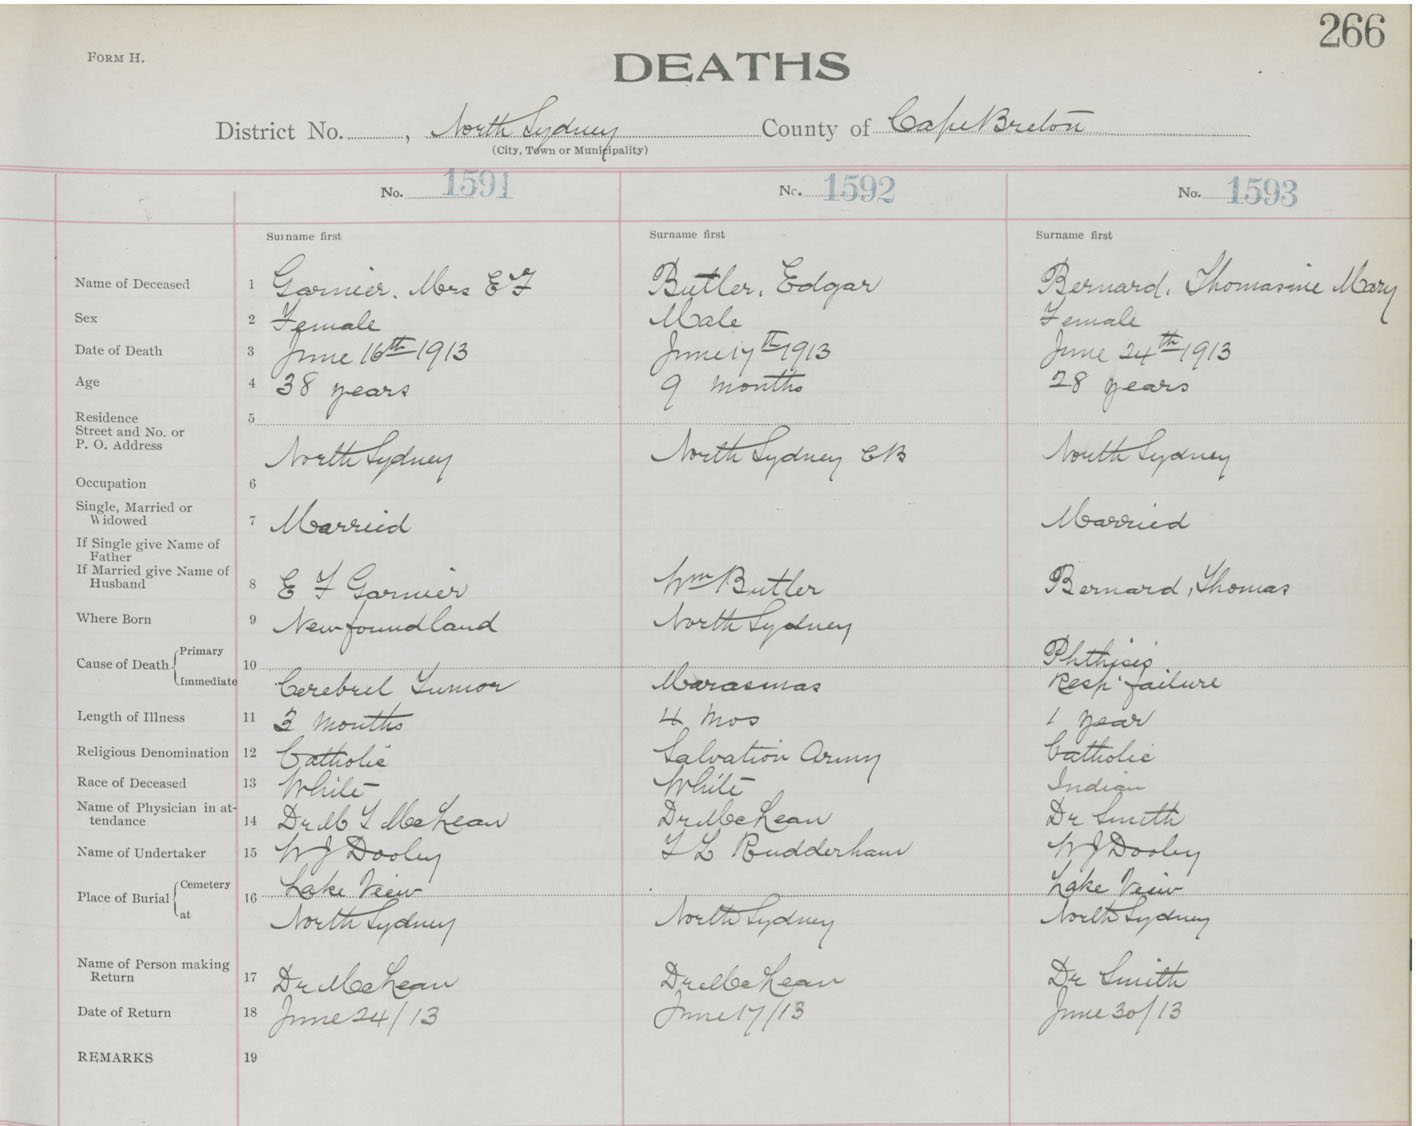 266
FORM H.
DEATHS
District No. , North Sydney County of Cape Breton
(City, Town or Municipality)
No. 1591 No. 1592 No. 1593
Surname first Surname first Surname first
Name of Deceased 1 Garnier. Mrs E F Butler, Edgar Bernard, Thomasine Mary
Sex 2 Female Male Female
Date of Death 3 June 16th 1913 June 17th 1913 June 24th 1913
Age 4 38 years 9 months 28 years
Residence 5
Street and No. or
P. O. Address North Sydney North Sydney CB North Sydney
Occupation 6
Single, Married or
Widowed 7 Married Married
If Single give Name of
Father
If Married give Name of
Husband 8 E F Garnier Wm Butler Bernard, Thomas
Where Born 9 Newfoundland North Sydney
Primary Phthisis
Cause of Death 10
Immediate Cerebrel Tumor Marasmas Resp failure
Length of Illness 11 3 months 4 mos 1 year
Religious Denomination 12 Catholic Salvation Army Catholic
Race of Deceased 13 White White Indian
Name of Physician in at-
tendance 14 Dr M T McLean Dr McLean Dr Smith
Name of Undertaker 15 W J Dooley F L Rudderham W J Dooley
Cemetery Lake View Lake View
Place of Burial 16
at North Sydney North Sydney North Sydney
Name of Person making
Return 17 Dr McLean Dr McLean Dr Smith
Date of Return 18 June 24/13 June 17/13 June 30/13
REMARKS 19